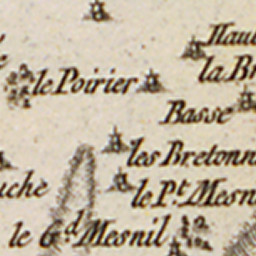 Hau
le Poirier
la B
Basse
les Bretonn
uche
le P.t Mesn
le G.d Mesnil